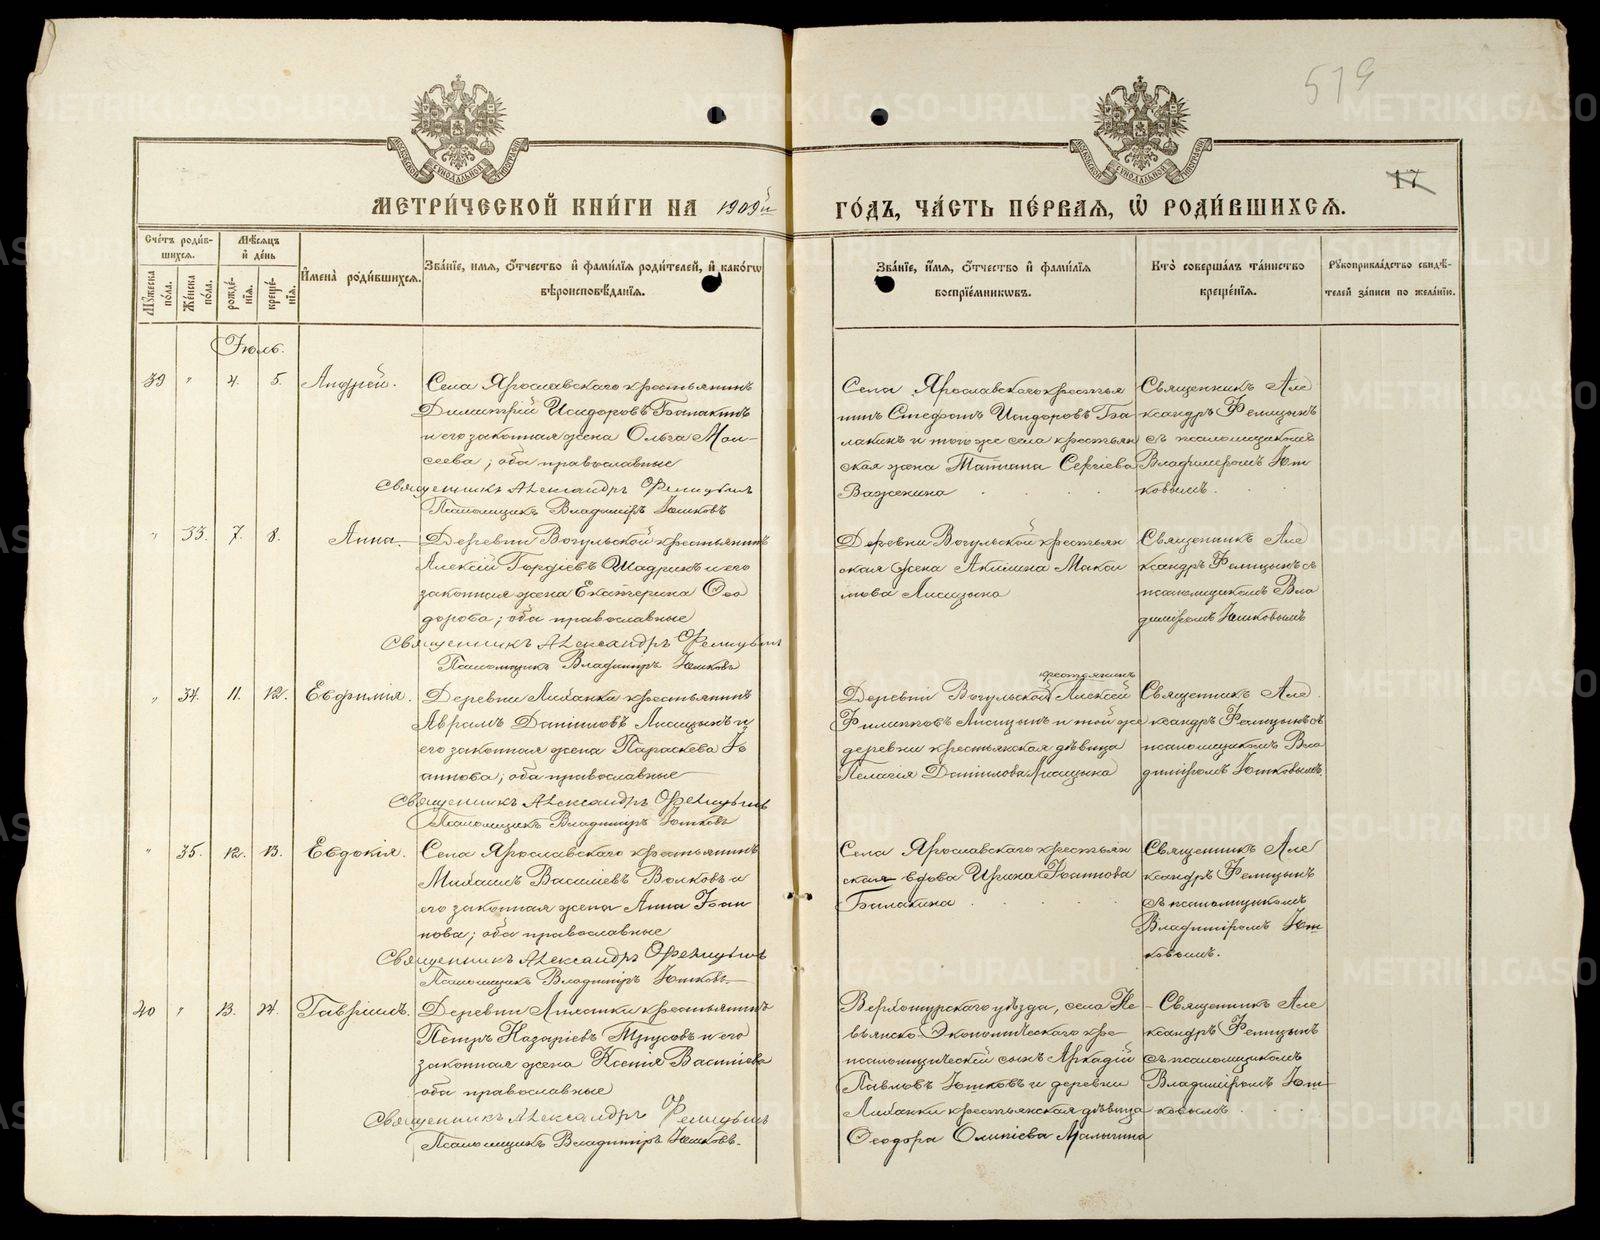 519
17
МЕТРИ́ЧЕСКОЙ КНИ́ГИ НА 1909й ГО́ДЪ, ЧА́СТЬ ПЕ́РВАЯ, Ѡ РОДИ́ВШИХСЯ.
Сче́тъ роди́в-
шихся.
Мꙋ́жеска по́ла.
Же́нска по́ла.
Мѣ́сяцъ
и де́нь
рожде́-
нїя.
креще́-
нїя.
И҆мена̀ роди́вшихся.
Зва́нїе, имя, ѻ҆́тчество и҆ фами́лїя роди́телей, и҆ како́гѡ
вѣроисповѣ́данїя.
Зва́нїе, и҆́мя, ѻ҆́тчество и҆ фами́лїя
воспрїе́мниковъ.
Кто̀ соверша́лъ та́инство
креще́нїя.
Рꙋкоприкла́дство свидѣ́-
телей за́писи по жела́нїю.
Іюль.
39 " 4. 5. Андрей.
Села Ярославскаго крестьянинъ
Димитрій Исидоровъ Балакинъ
и его законная жена Ольга Мои-
сеева; оба православные
Священникъ Александръ Фелицынъ
Псаломщикъ Владиміръ Юшковъ
Села Ярославскаго крестья
нинъ Стефанъ Исидоровъ Ба
лакинъ и того же села крестьян
ская жена Татіана Сергіева
Важенина
Священникъ Але
ксандръ Фелицынъ
съ псаломщикомъ
Владиміромъ Юш
ковымъ.
" 33. 7. 8. Анна.
Деревни Вогульской крестьянинъ
Алексій Гордіевъ Шадринъ и его
законная жена Екатерина Ѳео
дорова; оба православные
Священникъ Александръ Фелицынъ
Псаломщикъ Владиміръ Юшковъ
Деревни Вогульской крестьян
ская жена Акилина Макси
мова Лисицына
Священникъ Але
ксандръ Фелицынъ съ
псаломщикомъ Вла
диміромъ Юшковымъ
" 34. 11. 12. Евфимія.
Деревни Лисанки крестьянинъ
Аврамъ Даніиловъ Лисицынъ и
его законная жена Параскева Іо
аннова; оба православные
Священникъ Александръ Фелицынъ
Псаломщикъ Владиміръ Юшковъ
крестьянинъ
Деревни Вогульской Алексей
Филипповъ Лисицынъ и той же
деревни крестьянская дѣвица
Пелагія Даніилова Лисицына
Священникъ Але
ксандръ Фелицынъ съ
псаломщикомъ Вла
диміромъ Юшковымъ.
" 35. 12. 13. Евдокія.
Села Ярославскаго крестьянинъ
Михаилъ Василіевъ Волковъ и
его законная жена Анна Іоан
нова; оба православные
Священникъ Александръ Фелицынъ
Псаломщикъ Владиміръ Юшковъ
Села Ярославскаго крестьян
ская вдова Ирина Іоаннова
Балакина
Священникъ Але
ксандръ Фелицынъ
съ псаломщикомъ
Владиміромъ Юш
ковымъ.
40 " 13. 14. Гавріилъ.
Деревни крестьянинъ
Петръ Назаріевъ Трусовъ и его
законная жена Ксенія Василіева
оба православные
Священникъ Александръ Фелицынъ
Псаломщикъ Владиміръ Юшковъ.
Верхотурскаго уѣзда, села Не-
вьянско-Экономическаго кре-
псаломщическій сынъ Аркадій
Павловъ Юшковъ и деревни
крестьянская дѣвица
Ѳеодора Малыгина
Священникъ Але
ксандръ Фелицынъ
съ псаломщикомъ
Владиміромъ Юш
ковымъ
METRIKI.GASO-URAL.RU